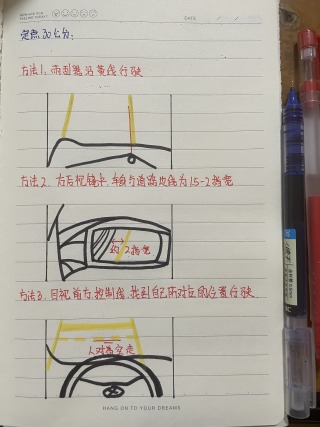 DATE
定点30公分:
方法1. 雨刮器沿黄线行驶
方法2. 右后视镜中,车身与道路边线为1.5-2指宽
约2指宽
方法3. 目视前方,控制线,找到自己所对应的位置行驶
人对着它走
HANG ON TO YOUR DREAMS